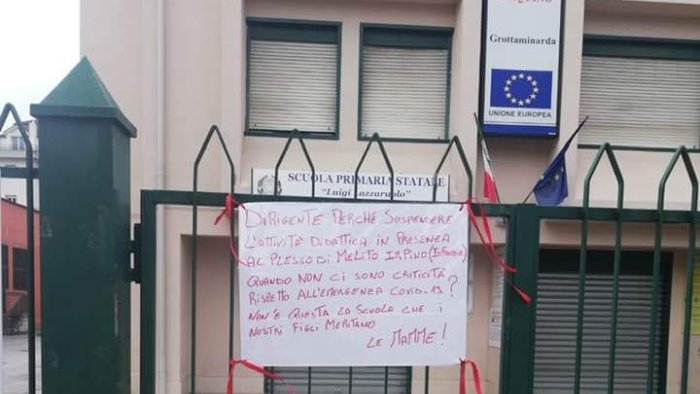 Grottaminarda
UNIONE EUROPEA
SCUOLA PRIMARIA STATALE
"Luigi
DIRIGENTE PERCHÉ SOSPENDERE
L'ATTIVITÀ DIDATTICA IN PRESENZA
AL PLESSO DI MELITO IRPINO (INFANZIA)
QUANDO NON CI SONO CRITICITÀ
RISPETTO ALL'EMERGENZA COVID-19?
NON È QUESTA LA SCUOLA CHE I
NOSTRI FIGLI MERITANO
LE MAMME!